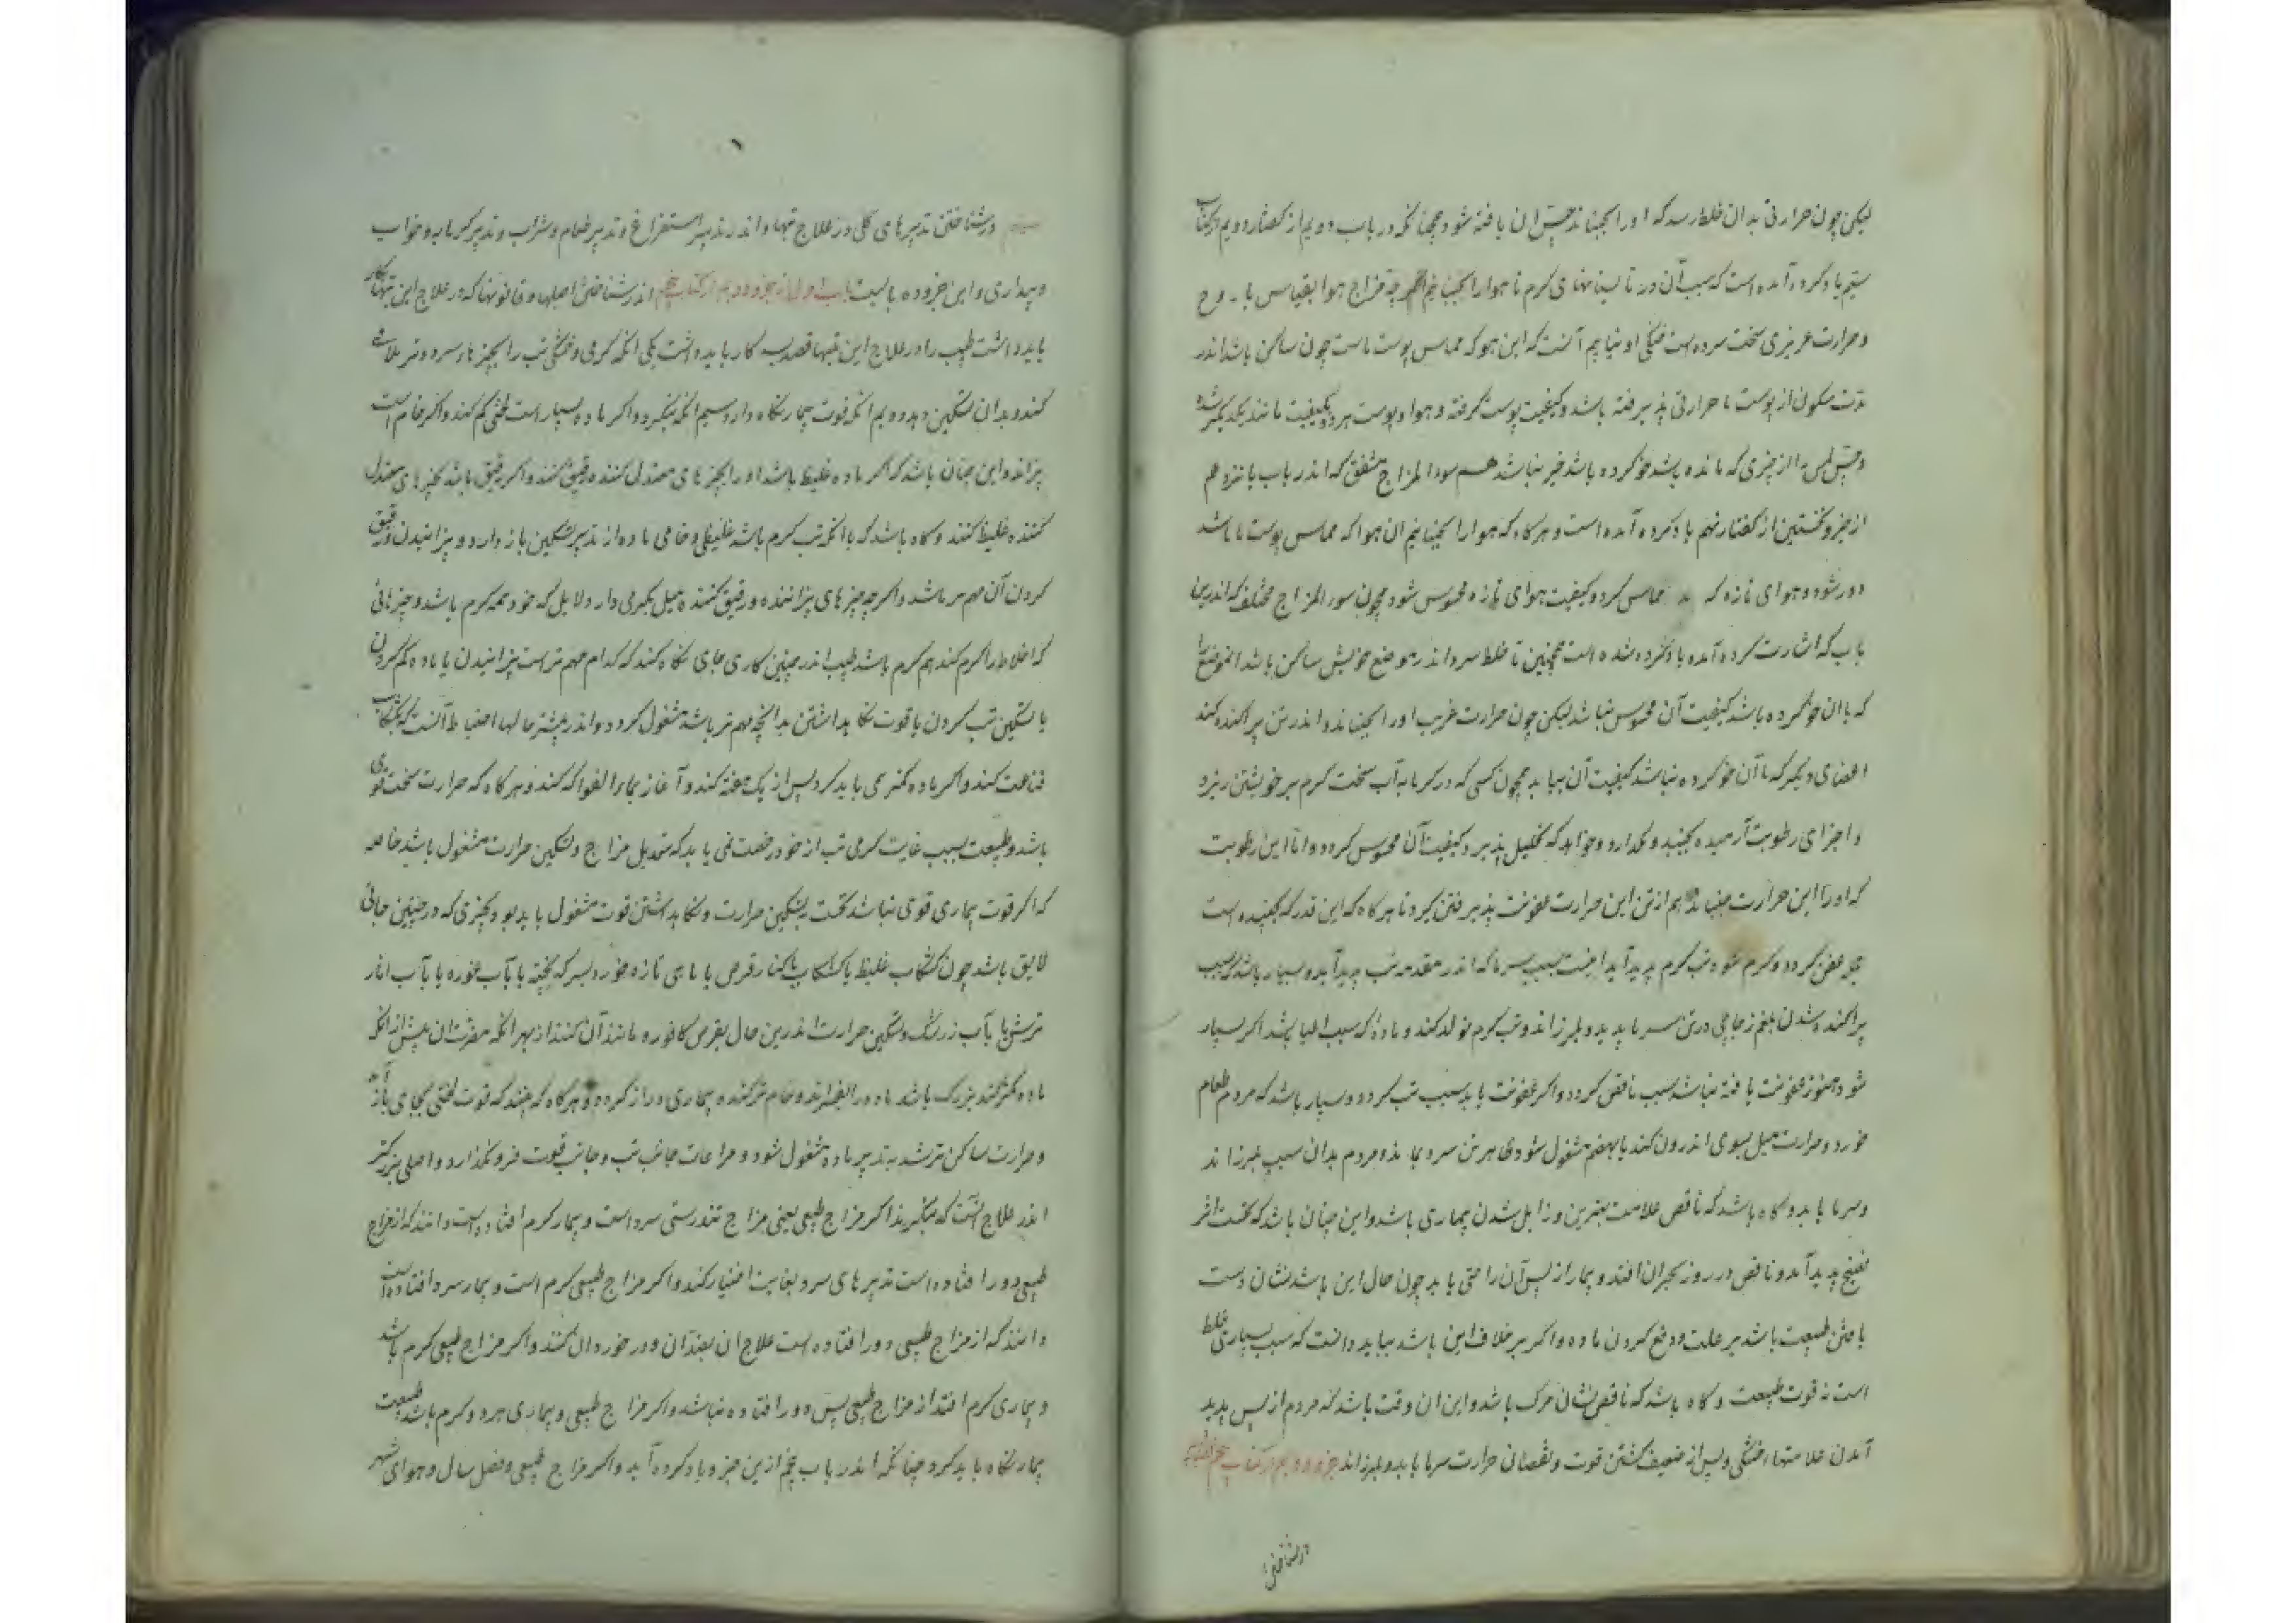 لیکن چون حرارتی بدان خلط رسد که او را بجنباند حس آن یافته شود چنانکه در باب دویم از گفتار دویم از کتاب
یاد کرده آمده است که سبب آن در تابستانهای گرم تا هوا را نجنبانیم اگر چه مزاج هوا بقیاس با روح
و حرارت غریزی سخت سرد است خنکی او نیابیم آنست که این هوا که مماس پوست ماست چون ساکن باشد اندر
مدت سکون از پوست ما حرارتی پذیرفته باشد و کیفیت پوست گرفته و هوا و پوست هر دو بکیفیت مانند یکدیگر شده
و حس لمس را از چیزی که مانده باشد خو کرده باشد خبر نباشد همچو سوء المزاج متفق که اندر باب پانزدهم
از جزو نخستین از گفتار نهم یاد کرده آمده است و هرگاه که هوا را بجنبانیم آن هوا که مماس پوست ما باشد
دور شود و هوای تازه که مماس گردد کیفیت هوای تازه محسوس شود همچون سوء المزاج مختلف که اندرین
باب که اشارت کرده آمده یاد کرده شده است همچنین تا خلط سرد اندر موضع خویش ساکن باشد آن موضع را
که با آن خو کرده باشد کیفیت آن محسوس نباشد لیکن چون حرارت غریب او را بجنباند و اندر تن پراکنده کند
اعضای دیگر که با آن خو کرده نباشد کیفیت آن بیابد همچون کسی که در گرمابه آب سخت گرم بر خویشتن ریزد
و اجزای رطوبت آرمیده بجنبد و بگدازد و خواهد که تحلیل پذیرد کیفیت آن محسوس گردد و اما این رطوبت
که او را این حرارت جنباند هم از تن این حرارت عفونت پذیرفتن گیرد تا هرگاه که این قدر که جنبیده است
عفن گردد و گرم شود تب گرم پدید آید اینست سبب سرما که اندر مقدمه تب پدید آید و بسیار باشد که بسبب
پراکنده شدن بلغم زجاجی در تن سرما پدید و بلرزاند و تب گرم تولد کند و ماده که سبب تبها باشد اگر بسیار
شود هنوز عفونت یافته نباشد سبب ناقض گردد و اگر عفونت یابد سبب تب گردد و بسیار باشد که مردم طعام
خورد و حرارت میل بسوی اندرون کند یا بهضم مشغول شود ظاهر تن سرد بماند و مردم بدان سبب بلرزاند
و سرما یابد و گاه باشد که ناقض علامت بهترین و زایل شدن بیماری باشد و این چنان باشد که نخست اثر
نضج پدید آمده و ناقض در روز بحران افتد و بیمار از پس آن راحتی یابد چون حال این باشد نشان دست
یافتن طبیعت باشد بر علت و دفع کردن ماده و اگر بر خلاف این باشد بباید دانست که سبب بسیاری خلط
است نه قوت طبیعت و گاه باشد که ناقض نشان مرگ باشد و این آن وقت باشد که مردم از پس پدید
آمدن علامتها خشکی و پس از ضعیف گشتن قوت و نقصان حرارت سرما یابد و بلرزاند جزو دویم از کتاب پنجم
در شناختن
در شناختن تدبیرهای کلی در علاج تبها و اندر تدبیر استفراغ و تدبیر طعام و شراب و تدبیر گرمابه و خواب
و بیداری و این جزو ده بابست باب اول از جزو دویم از کتاب پنجم اندر شناختن اصلها و قانونها که در علاج این تبها نگاه
باید داشت طبیب را در علاج این تبها قصد سه کار باید داشت یکی آنکه گرمی و خشکی تب را بچیزهای سرد و تر علاج
کند و بدان تسکین دهد دویم آنکه قوت بیمار نگاه دارد سیم آنکه بنگرد و اگر ماده بسیار است لختی کم کند و اگر خام است
بپزاند و این چنان باشد که اگر ماده غلیظ باشد او را بچیزهای معتدل کننده رقیق کنند و اگر رقیق باشد بچیزهای معتدل
کننده غلیظ کنند و گاه باشد که با آنکه تب گرم باشد غلیظی و خامی ماده از تدبیر تسکین باز دارد و پزانیدن و رقیق
کردن آن مهم تر باشد و اگر چه چیزهای پزاننده و رقیق کننده میل بگرمی دارد لابل که خود همه گرم باشد و چیزهائی
که اخلاط را گرم کند هم گرم باشد طبیب اندر چنین کاری جای نگاه کند که کدام مهم تر است پزانیدن یا ماده کم کردن
یا تسکین تب کردن یا قوت نگاه داشتن بدانچه مهم تر باشد مشغول گردد و اندر بیشتر حالها احتیاط آنست که بکشکاب
قناعت کند و اگر ماده کمتری باید کرد پس از یک هفته کند و آغاز بماء الفواکه کند و هرگاه که حرارت سخت قوی
باشد و طبیعت بسبب غایت گرمی تب از خود رخصت نمی یابد که بتعدیل مزاج و تسکین حرارت مشغول باشد خاصه
که اگر قوت بیماری قوی نباشد نخست بتسکین حرارت و نگاه داشتن قوت مشغول باید بود و بچیزی که در چنین حالی
لایق باشد چون کشکاب غلیظ یا کشکاب با کنار قرص یا ماهی تازه خورد بسرکه پخته یا بآب غوره یا بآب انار
ترش یا بآب زرشک و تسکین حرارت اندرین حال بقرص کافور و مانند آن کنند از بهر آنکه مضرت آن بیش از آنکه
ماده کمتر کند بزرگ باشد ماده را بفسراند و خام تر کند و بیماری دراز گردد و هرگاه که بیند که قوت لختی بجای باز آمد
و حرارت ساکن تر شد بتدبیر ماده مشغول شود و مراعات جانب تب و جانب قوت فرو نگذارد و اصلی بزرگتر
اندر علاج آنست که بنگرند اگر مزاج طبیعی یعنی مزاج تندرستی سرد است و بیمار گرم افتاده است دانند که از مزاج
طبیعی دور افتاده است تدبیرهای سرد بغایت اختیار کند و اگر مزاج طبیعی گرم است و بیمار سرد افتاده است
دانند که از مزاج طبیعی دور افتاده است علاج آن بضد آن و در خورد آن کنند و اگر مزاج طبیعی گرم باشد
و بیماری گرم افتد از مزاج طبیعی بس دور افتاده نباشد و اگر مزاج طبیعی و بیماری هر دو گرم باشد طبیعت
بیمار نگاه باید کرد چنانکه اندر باب پنجم ازین جزو یاد کرده آید و اگر مزاج طبیعی و فصل سال و هوای شهر